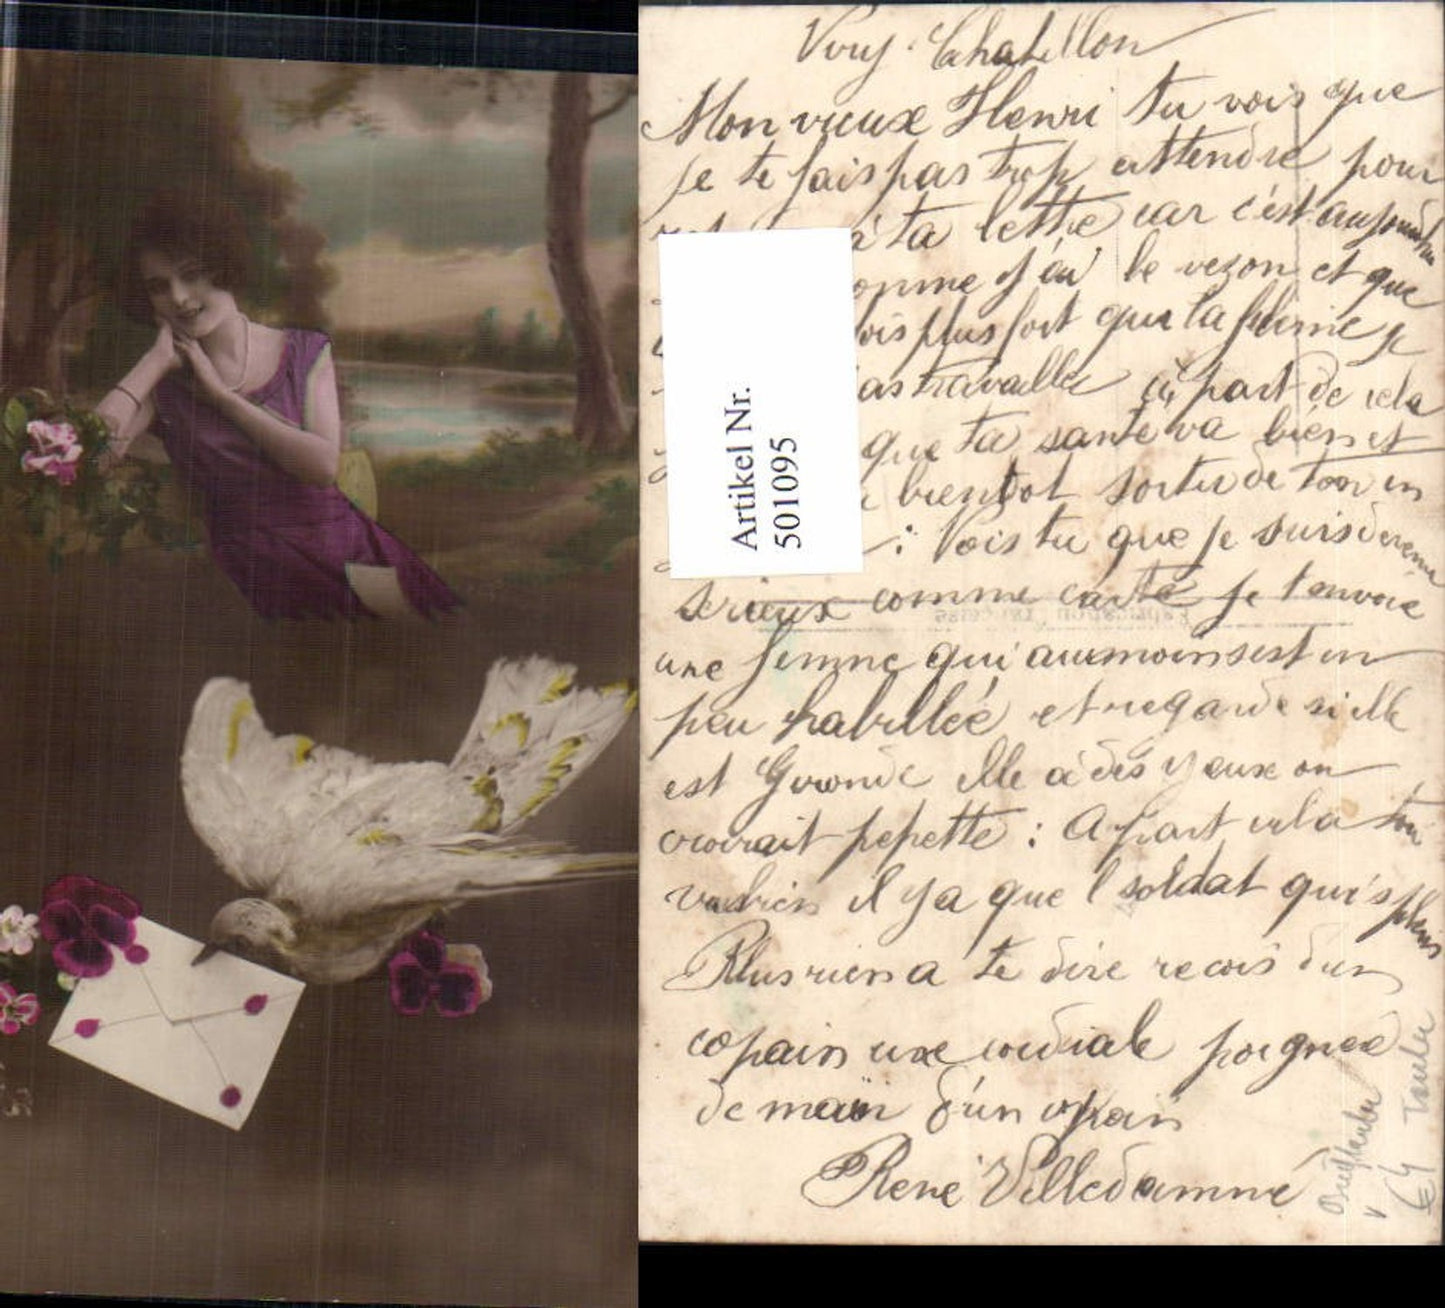 Viry-Chatillon
Mon vieux Henri tu vois que
je te fais pas trop attendre pour
à ta lettre car c'est aujourdui
omme j'ai le vezon et que
ois plus fort que la plume je
as travaillé à part de cela
que ta santé va bien et
bientot sortir de ton
: Vois tu que je suis devenu
serieux comme carte je t'envoie
une femme qui aumoins est un
peu habillée et regarde si elle
est Gironde elle a des yeux on
croirait pepette : A part cela tou
va bien il y a que l soldat qui s
Plus rien a te dire recois d'un
copain une cordiale poignee
de main d'un copain
René Villedamné
Artikel Nr.
501095
Brieftauber
v
€4 Taube